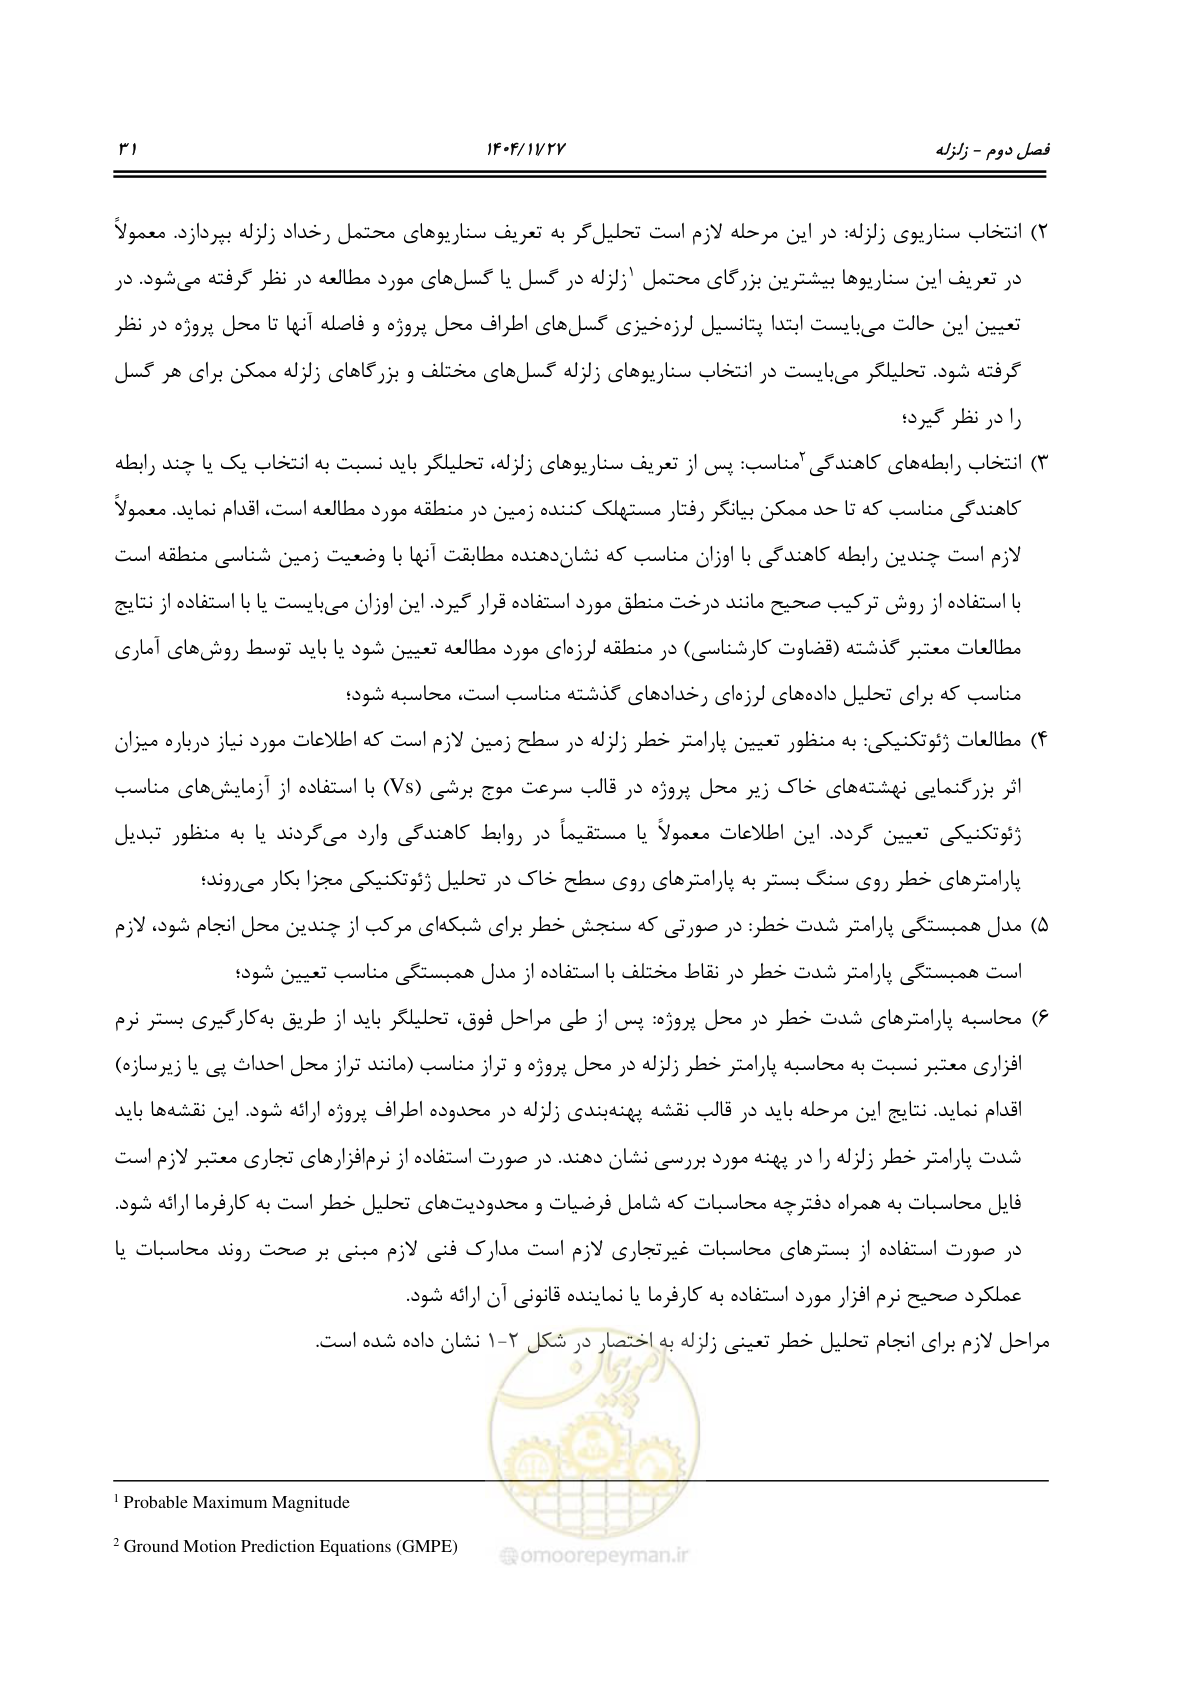 فصل دوم – زلزله ۱۴۰۴/۱۱/۲۷ ۳۱
۲) انتخاب سناریوی زلزله: در این مرحله لازم است تحلیل‌گر به تعریف سناریوهای محتمل رخداد زلزله بپردازد. معمولاً
در تعریف این سناریوها بیشترین بزرگای محتمل ۱زلزله در گسل یا گسل‌های مورد مطالعه در نظر گرفته می‌شود. در
تعیین این حالت می‌بایست ابتدا پتانسیل لرزه‌خیزی گسل‌های اطراف محل پروژه و فاصله آنها تا محل پروژه در نظر
گرفته شود. تحلیلگر می‌بایست در انتخاب سناریوهای زلزله گسل‌های مختلف و بزرگاهای زلزله ممکن برای هر گسل
را در نظر گیرد؛
۳) انتخاب رابطه‌های کاهندگی ۲مناسب: پس از تعریف سناریوهای زلزله، تحلیلگر باید نسبت به انتخاب یک یا چند رابطه
کاهندگی مناسب که تا حد ممکن بیانگر رفتار مستهلک کننده زمین در منطقه مورد مطالعه است، اقدام نماید. معمولاً
لازم است چندین رابطه کاهندگی با اوزان مناسب که نشان‌دهنده مطابقت آنها با وضعیت زمین شناسی منطقه است
با استفاده از روش ترکیب صحیح مانند درخت منطق مورد استفاده قرار گیرد. این اوزان می‌بایست یا با استفاده از نتایج
مطالعات معتبر گذشته (قضاوت کارشناسی) در منطقه لرزه‌ای مورد مطالعه تعیین شود یا باید توسط روش‌های آماری
مناسب که برای تحلیل داده‌های لرزه‌ای رخدادهای گذشته مناسب است، محاسبه شود؛
۴) مطالعات ژئوتکنیکی: به منظور تعیین پارامتر خطر زلزله در سطح زمین لازم است که اطلاعات مورد نیاز درباره میزان
اثر بزرگنمایی نهشته‌های خاک زیر محل پروژه در قالب سرعت موج برشی (Vs) با استفاده از آزمایش‌های مناسب
ژئوتکنیکی تعیین گردد. این اطلاعات معمولاً یا مستقیماً در روابط کاهندگی وارد می‌گردند یا به منظور تبدیل
پارامترهای خطر روی سنگ بستر به پارامترهای روی سطح خاک در تحلیل ژئوتکنیکی مجزا بکار می‌روند؛
۵) مدل همبستگی پارامتر شدت خطر: در صورتی که سنجش خطر برای شبکه‌ای مرکب از چندین محل انجام شود، لازم
است همبستگی پارامتر شدت خطر در نقاط مختلف با استفاده از مدل همبستگی مناسب تعیین شود؛
۶) محاسبه پارامترهای شدت خطر در محل پروژه: پس از طی مراحل فوق، تحلیلگر باید از طریق به‌کارگیری بستر نرم
افزاری معتبر نسبت به محاسبه پارامتر خطر زلزله در محل پروژه و تراز مناسب (مانند تراز محل احداث پی یا زیرسازه)
اقدام نماید. نتایج این مرحله باید در قالب نقشه پهنه‌بندی زلزله در محدوده اطراف پروژه ارائه شود. این نقشه‌ها باید
شدت پارامتر خطر زلزله را در پهنه مورد بررسی نشان دهند. در صورت استفاده از نرم‌افزارهای تجاری معتبر لازم است
فایل محاسبات به همراه دفترچه محاسبات که شامل فرضیات و محدودیت‌های تحلیل خطر است به کارفرما ارائه شود.
در صورت استفاده از بسترهای محاسبات غیرتجاری لازم است مدارک فنی لازم مبنی بر صحت روند محاسبات یا
عملکرد صحیح نرم افزار مورد استفاده به کارفرما یا نماینده قانونی آن ارائه شود.
مراحل لازم برای انجام تحلیل خطر تعینی زلزله به اختصار در شکل ۲-۱ نشان داده شده است.
امور پیمان
1 Probable Maximum Magnitude
2 Ground Motion Prediction Equations (GMPE)
@omoorepeyman.ir